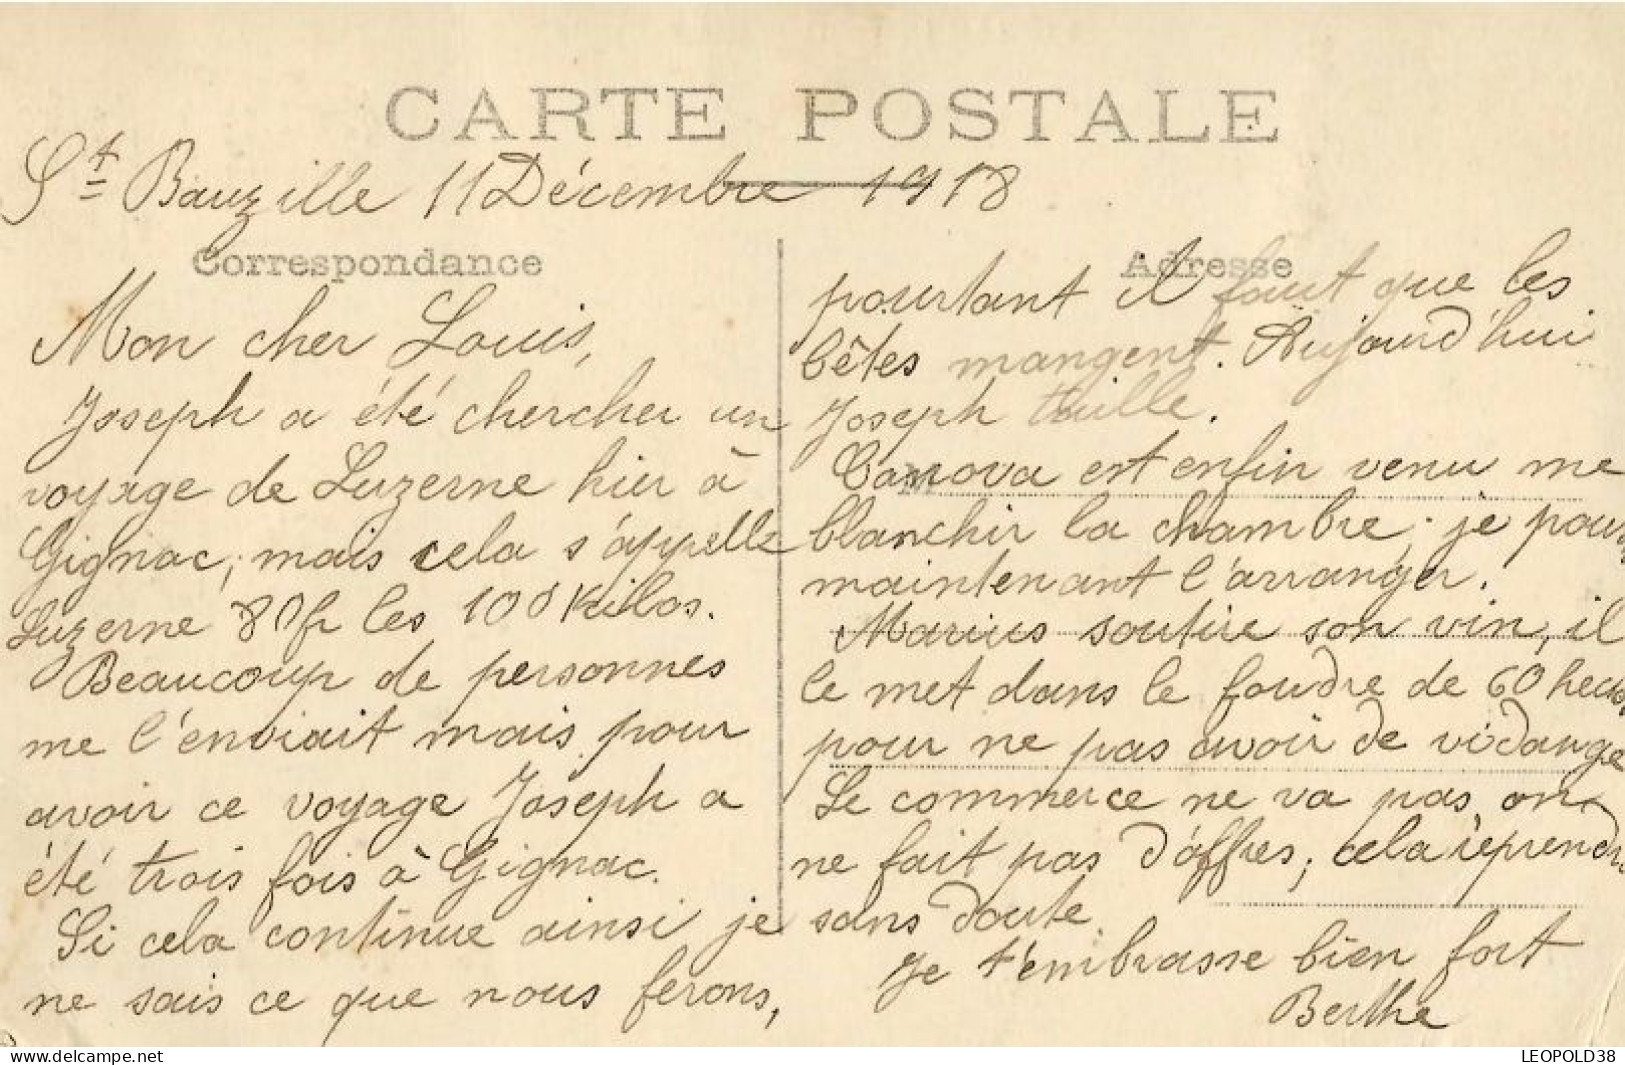 CARTE POSTALE
St Bauzille 11 Décembre 1918
Correspondance
Mon cher Louis,
Joseph a été chercher un
voyage de Luzerne hier à
Gignac; mais cela s'appelle
Luzerne 80fr les 100 Kilos.
Beaucoup de personnes
me l'enviait mais pour
avoir ce voyage Joseph a
été trois fois à Gignac.
Si cela continue ainsi je
ne sais ce que nous ferons,
Adresse
pourtant il faut que les
bêtes mangent. Aujourd'hui
Joseph taille.
M
Canova est enfin venu me
blanchir la chambre; je pourrai
maintenant l'arranger.
Marius soutire son vin, il
le met dans le foudre de 60 hectos
pour ne pas avoir de vidange
Le commerce ne va pas, on
ne fait pas d'offres; cela reprendra
sans doute.
Je t'embrasse bien fort
Berthe
LEOPOLD38
delcampe.net